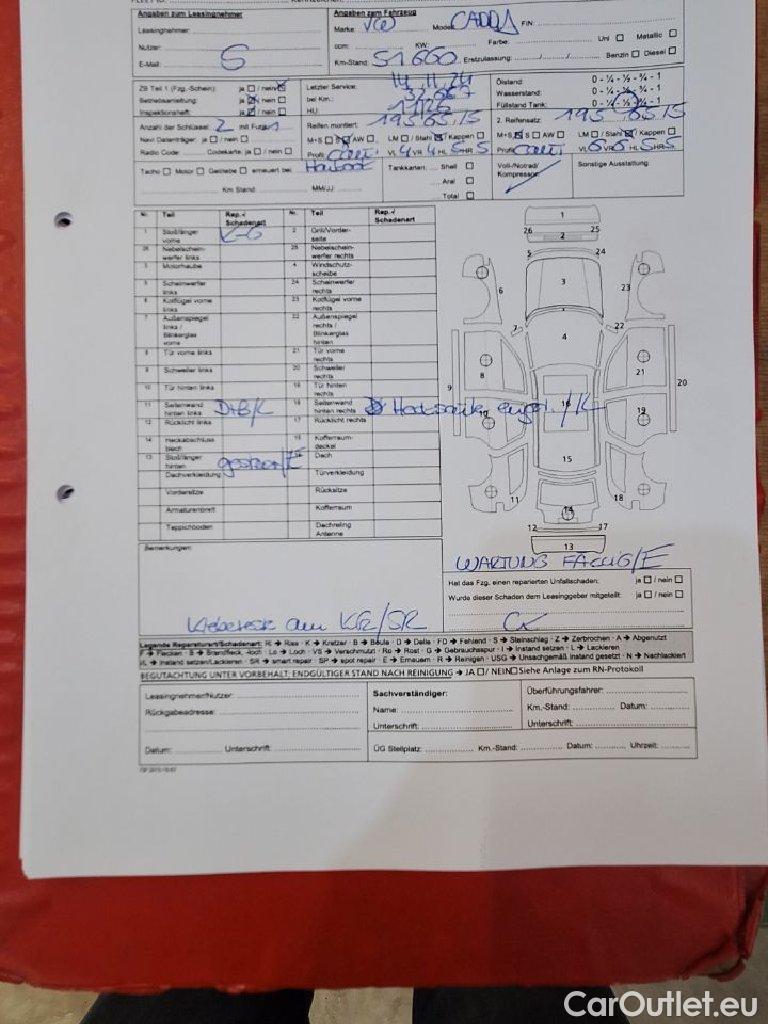 Angaben zum Leasingnehmer
Angaben zum Fahrzeug
Leasingnehmer:
Marke VW Model CADDY FIN:
Nutzer:
ccm: KW: Farbe: Uni Metallic
E-Mail:
Km-Stand: 51660 Erstzulassung: Benzin Diesel
ZB Teil 1 (Fzg.-Schein): ja / nein
Letzter Service: 14.11.24
Ölstand: 0 - ¼ - ½ - ¾ - 1
Betriebsanleitung: ja / nein
bei Km.:
Wasserstand: 0 - ¼ - ½ - ¾ - 1
Inspektionsheft: ja / nein
HU:
Füllstand Tank: 0 - ¼ - ½ - ¾ - 1
Anzahl der Schlüssel: 2 mit Funk 1
Reifen, montiert: 195/65/15
2. Reifensatz: 195/65/15
Navi Datenträger: ja / nein
M+S AW LM / Stahl / Kappen
M+S S AW LM / Stahl / Kappen
Radio Code: Codekarte: ja / nein
Profil VL 4 VR 4 HL 5 HR 5
Profil VL 6 VR 6 HL 5 HR 5
Tacho Motor Getriebe erneuert bei
Km Stand MM/JJ
Tankkarten: Shell
Aral
Total
Voll-/Notrad/
Kompressor
Sonstige Ausstattung:
Nr. Teil Rep.-/ Schadenart Nr. Teil Rep.-/ Schadenart
1 Stoßfänger vorne K-G 2 Grill/Vorderseite
26 Nebelscheinwerfer links 25 Nebelscheinwerfer rechts
3 Motorhaube 4 Windschutzscheibe
5 Scheinwerfer links 24 Scheinwerfer rechts
6 Kotflügel vorne links 23 Kotflügel vorne rechts
7 Außenspiegel links / Blinkerglas vorne 22 Außenspiegel rechts / Blinkerglas rechts
8 Tür vorne links 21 Tür vorne rechts
9 Schweller links 20 Schweller rechts
10 Tür hinten links 19 Tür hinten rechts
11 Seitenwand hinten links D+B/K 18 Seitenwand hinten rechts
12 Rücklicht links 17 Rücklicht rechts
14 Heckabschlussblech Kofferraumdeckel
13 Stoßfänger hinten Dach
Dachverkleidung Türverkleidung
Vordersitze Rücksitze
Armaturenbrett Kofferraum
Teppichboden Dachreling Antenne
1
26 2 25
5 24
6 3 23
7 22
4
8 21
9 20
10 16 19
15
11 14 18
12 17
13
Bemerkungen:
WARTUNG FÄLLIG/E
Hat das Fzg. einen reparierten Unfallschaden: ja / nein
Wurde dieser Schaden dem Leasinggeber mitgeteilt: ja / nein
Klebereste am KR/SR
Legende Reparaturart/Schadenart: R → Riss - K → Kratzer - B → Beule - D → Delle - FD → Fehlend - S → Steinschlag - Z → Zerbrochen - A → Abgenutzt
F → Flecken - B → Brandfleck, -loch - Lo → Loch - VS → Verschmutzt - Ro → Rost - G → Gebrauchsspur - I → Instand setzen - L → Lackieren
I/L → Instand setzen/Lackieren - SR → smart repair - SP → spot repair - E → Erneuern - R → Reinigen - USG → Unsachgemäß instand gesetzt - N → Nachlackiert
BEGUTACHTUNG UNTER VORBEHALT; ENDGÜLTIGER STAND NACH REINIGUNG → JA / NEIN Siehe Anlage zum RN-Protokoll
Leasingnehmer/Nutzer:
Sachverständiger:
Überführungsfahrer:
Rückgabeadresse:
Name:
Km.-Stand: Datum:
Unterschrift:
Unterschrift:
Datum: Unterschrift:
ÜG Stellplatz: Km.-Stand: Datum: Uhrzeit:
CarOutlet.eu